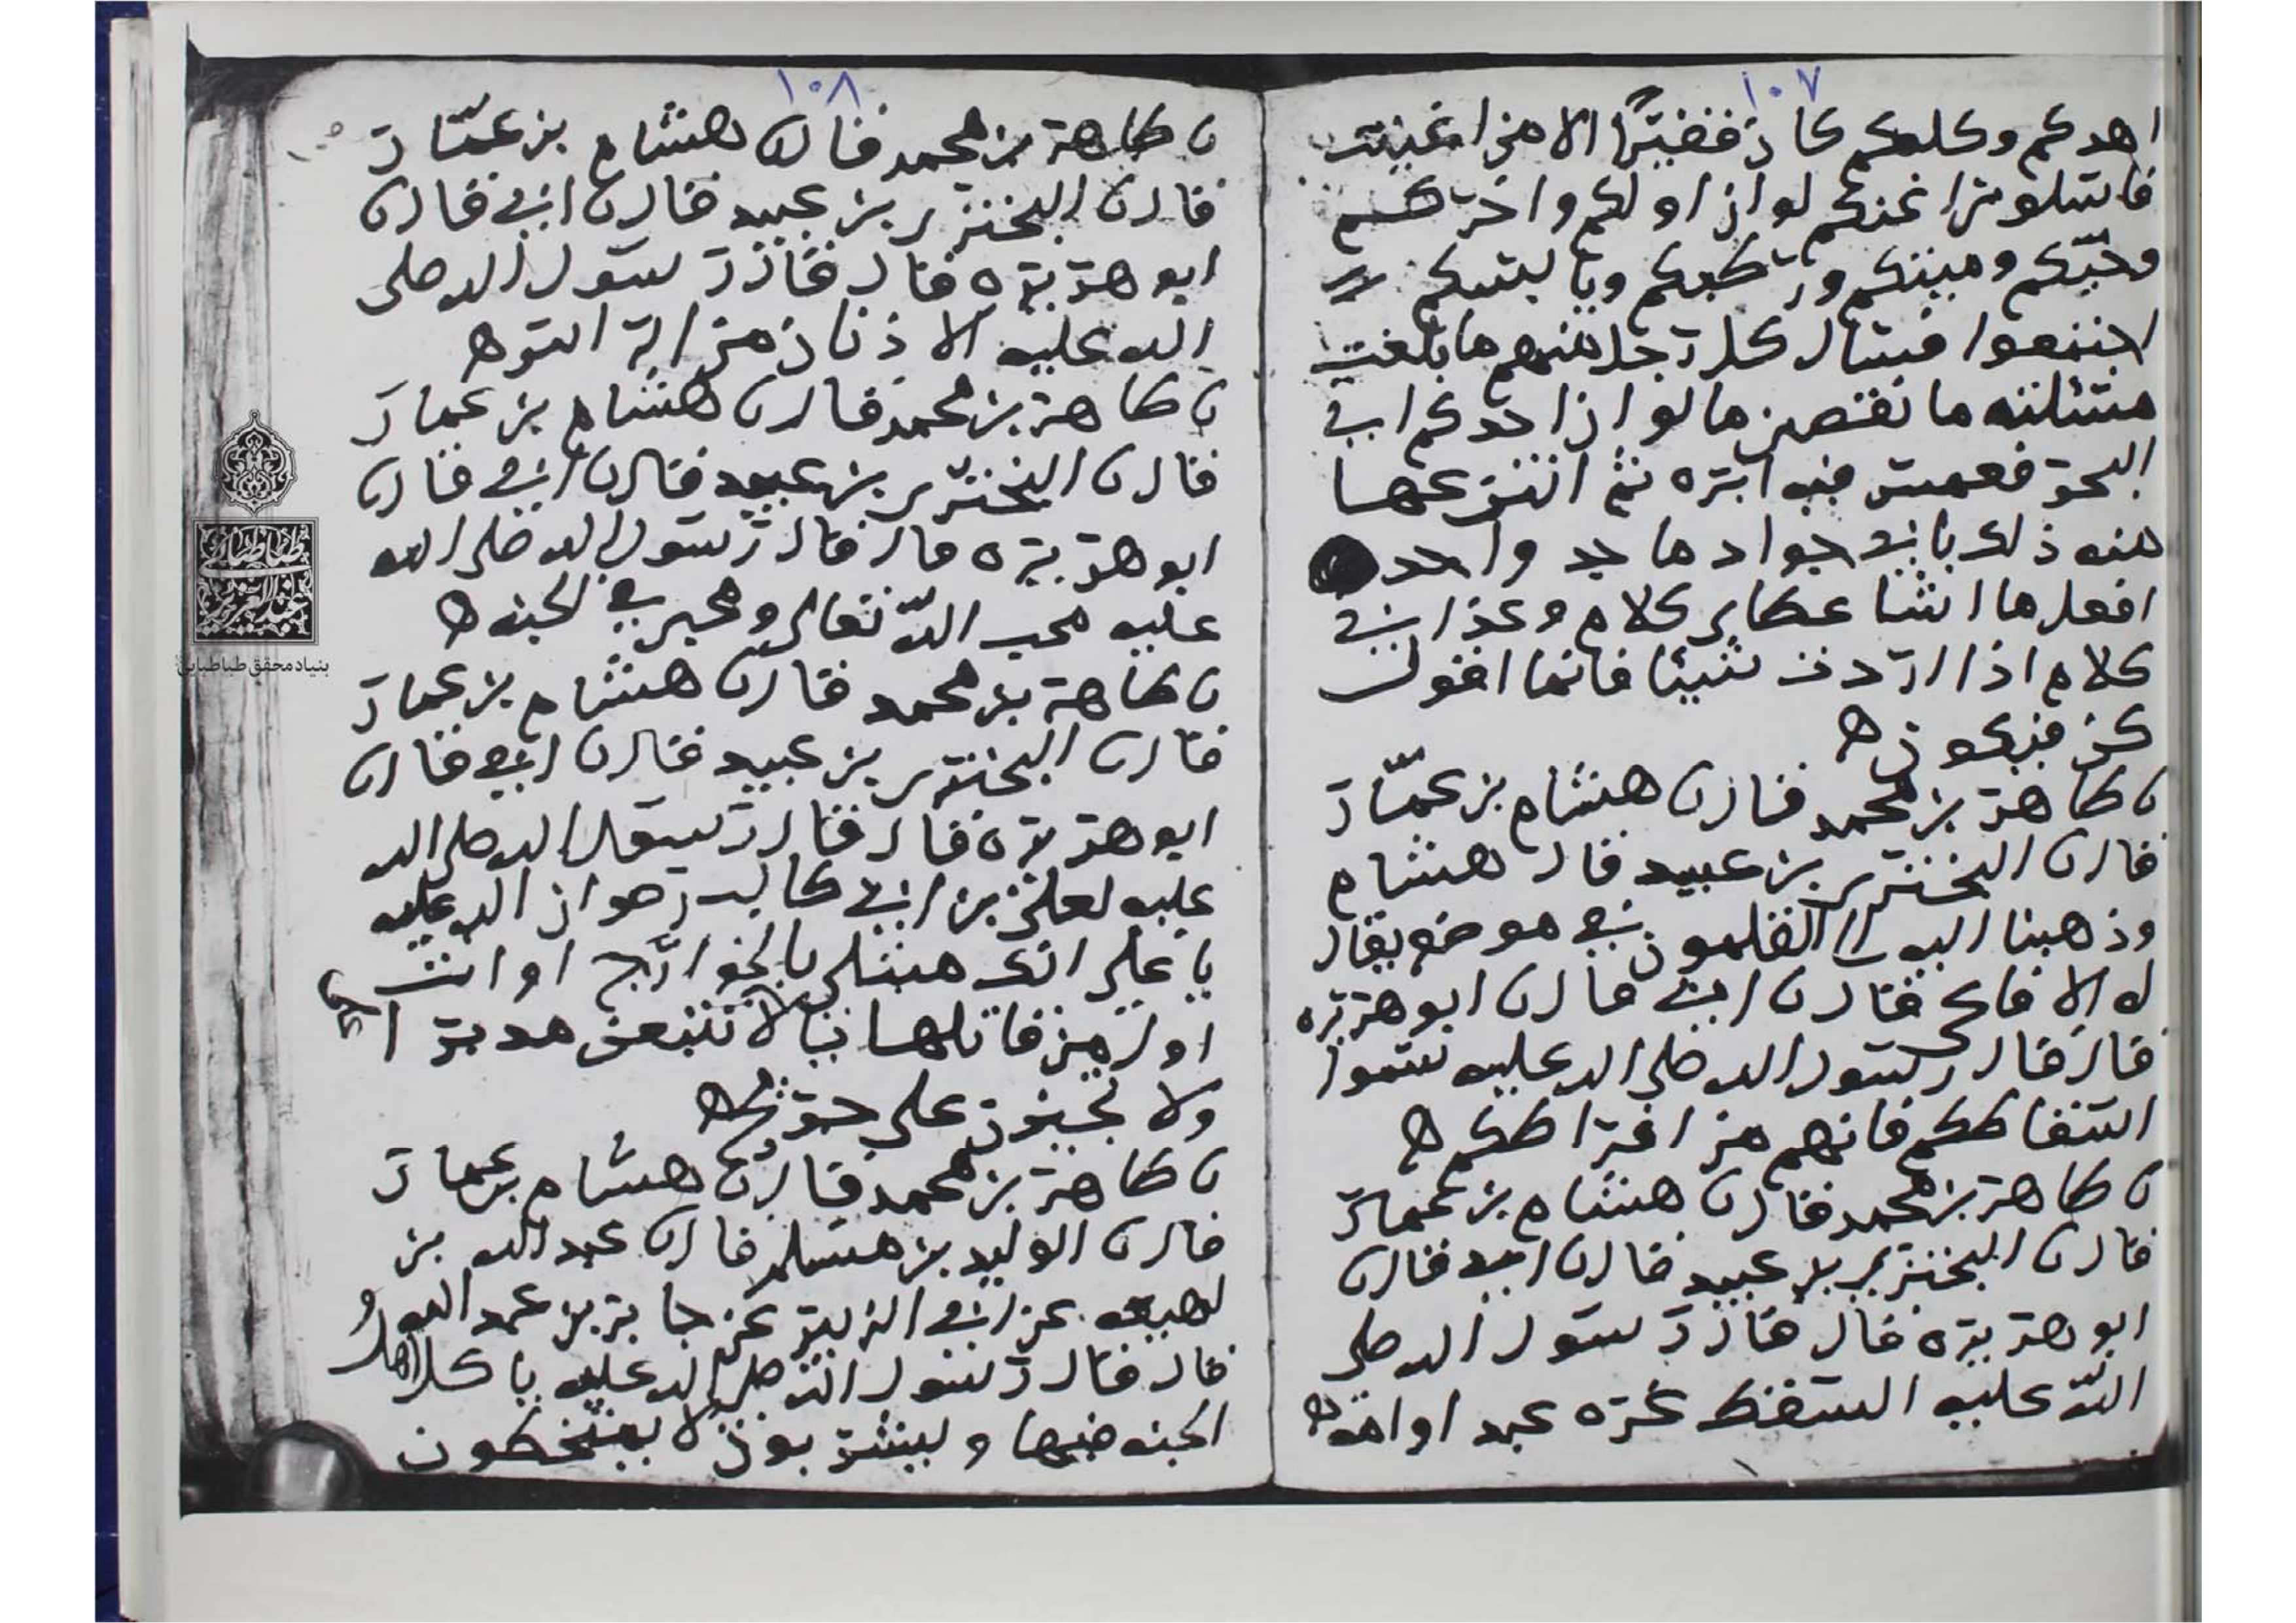 ١٠٧
اهدكم وكلكم كان فقيرا الا من اغنيت
فاسئلوني اغنكم لو ان اولكم واخركم
وحيكم وميتكم ورطبكم ويابسكم
اجتمعوا فسال كل رجل منهم ما بلغت
مسئلته ما نقص من مالو ان احدكم اتى
البحر فغمس فيه ابره ثم انتزعها
منه ذلك باني جواد ماجد واحد
افعل ما اشا عطاى كلام وعذابي
كلام اذا اردت شيئا فانما اقول
كن فيكون ه
ن طاهر بن محمد قال ن هشام بن عمّار
قال ن البختري بن عبيد قال هشام
وذهبنا اليه الى القلمون في موضع يقال
له الافاعي قال ن ابي قال ن ابو هريره
قال قال رسول الله صلى الله عليه سموا
اسقاطكم فانهم من افراطكم ه
ن طاهر بن محمد قال ن هشام بن عمار
قال ن البختري بن عبيد قال ن ابي قال ن
ابو هريره قال قال رسول الله صلى
اللّه عليه السقط غره عبد او امه ه
١٠٨
ن طاهر بن محمد قال ن هشام بن عمّار
قال ن البختري بن عبيد قال ن ابي قال ن
ابو هريره قال قال رسول الله صلى
الله عليه الاذنان من الراس ه
ن طاهر بن محمد قال ن هشام بن عمار
قال ن البختري بن عبيد قال ن ابي قال ن
ابو هريره قال قال رسول الله صلى الله
عليه محب اللّه تعالى ومحبي في الجنه ه
ن طاهر بن محمد قال ن هشام بن عمار
قال ن البختري بن عبيد قال ن ابي قال ن
ابو هريره قال قال رسول الله صلى الله
عليه لعلي بن ابي طالب رضوان الله عليه
يا علي انك مبتلى بالخوارج او انت
اول من قاتلها لا تتبعن مدبرا
ولا تجيزن على جريح ه
ن طاهر بن محمد قال ن هشام بن عمار
قال ن الوليد بن مسلم قال ن عبد الله بن
لهيعه عن ابي الزبير عن جابر بن عبد الله
قال قال رسول الله صلى الله عليه ياكل اهل
الجنه فيها ويشربون لا يمتخطون
بنیاد محقق طباطبایی